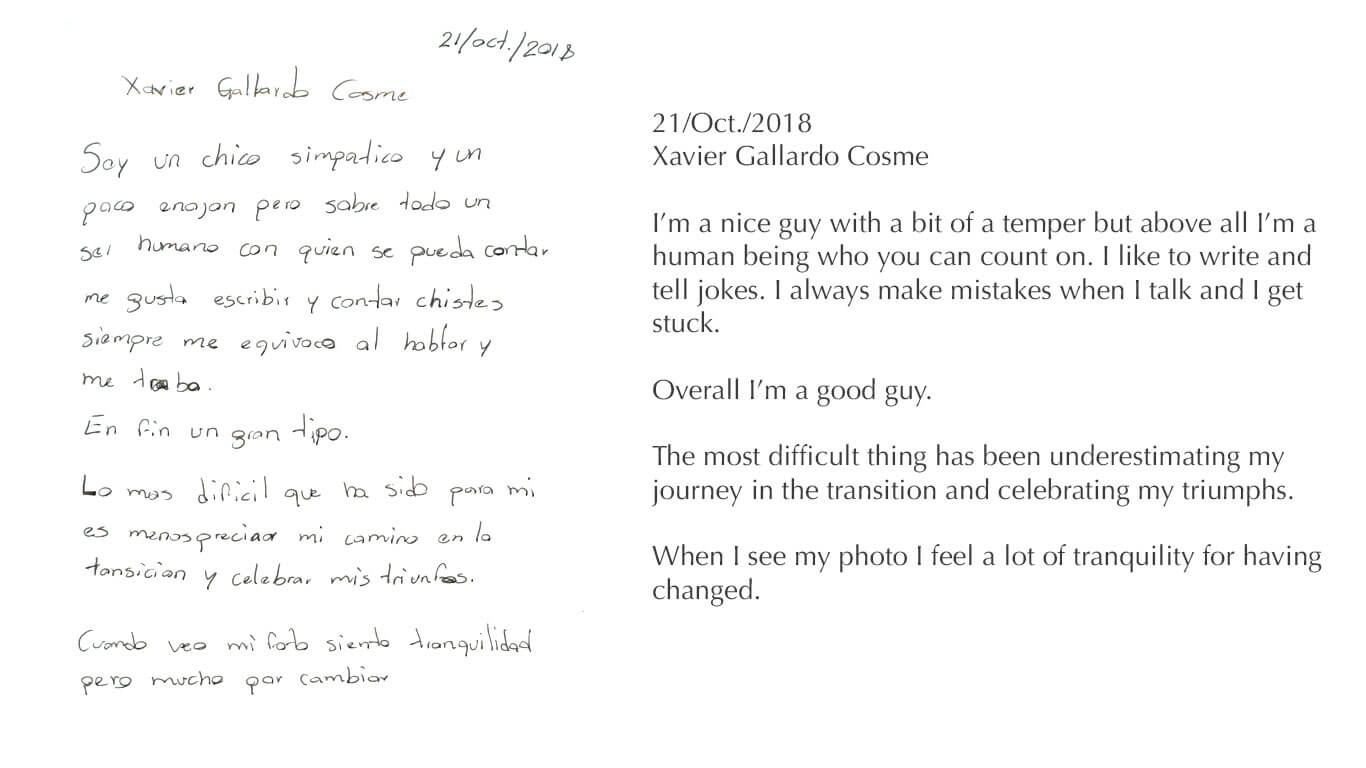 21/oct./2018
Xavier Gallardo Cosme
Soy un chico simpatico y un
poco enojon pero sobre todo un
ser humano con quien se pueda contar
me gusta escribir y contar chistes
siempre me equivoco al hablar y
me trabo.
En fin un gran tipo.
Lo mas dificil que ha sido para mi
es menospreciar mi camino en la
tansicion y celebrar mis triunfos.
Cuando veo mi foto siento tranquilidad
pero mucho por cambiar
21/Oct./2018
Xavier Gallardo Cosme
I’m a nice guy with a bit of a temper but above all I’m a
human being who you can count on. I like to write and
tell jokes. I always make mistakes when I talk and I get
stuck.
Overall I’m a good guy.
The most difficult thing has been underestimating my
journey in the transition and celebrating my triumphs.
When I see my photo I feel a lot of tranquility for having
changed.